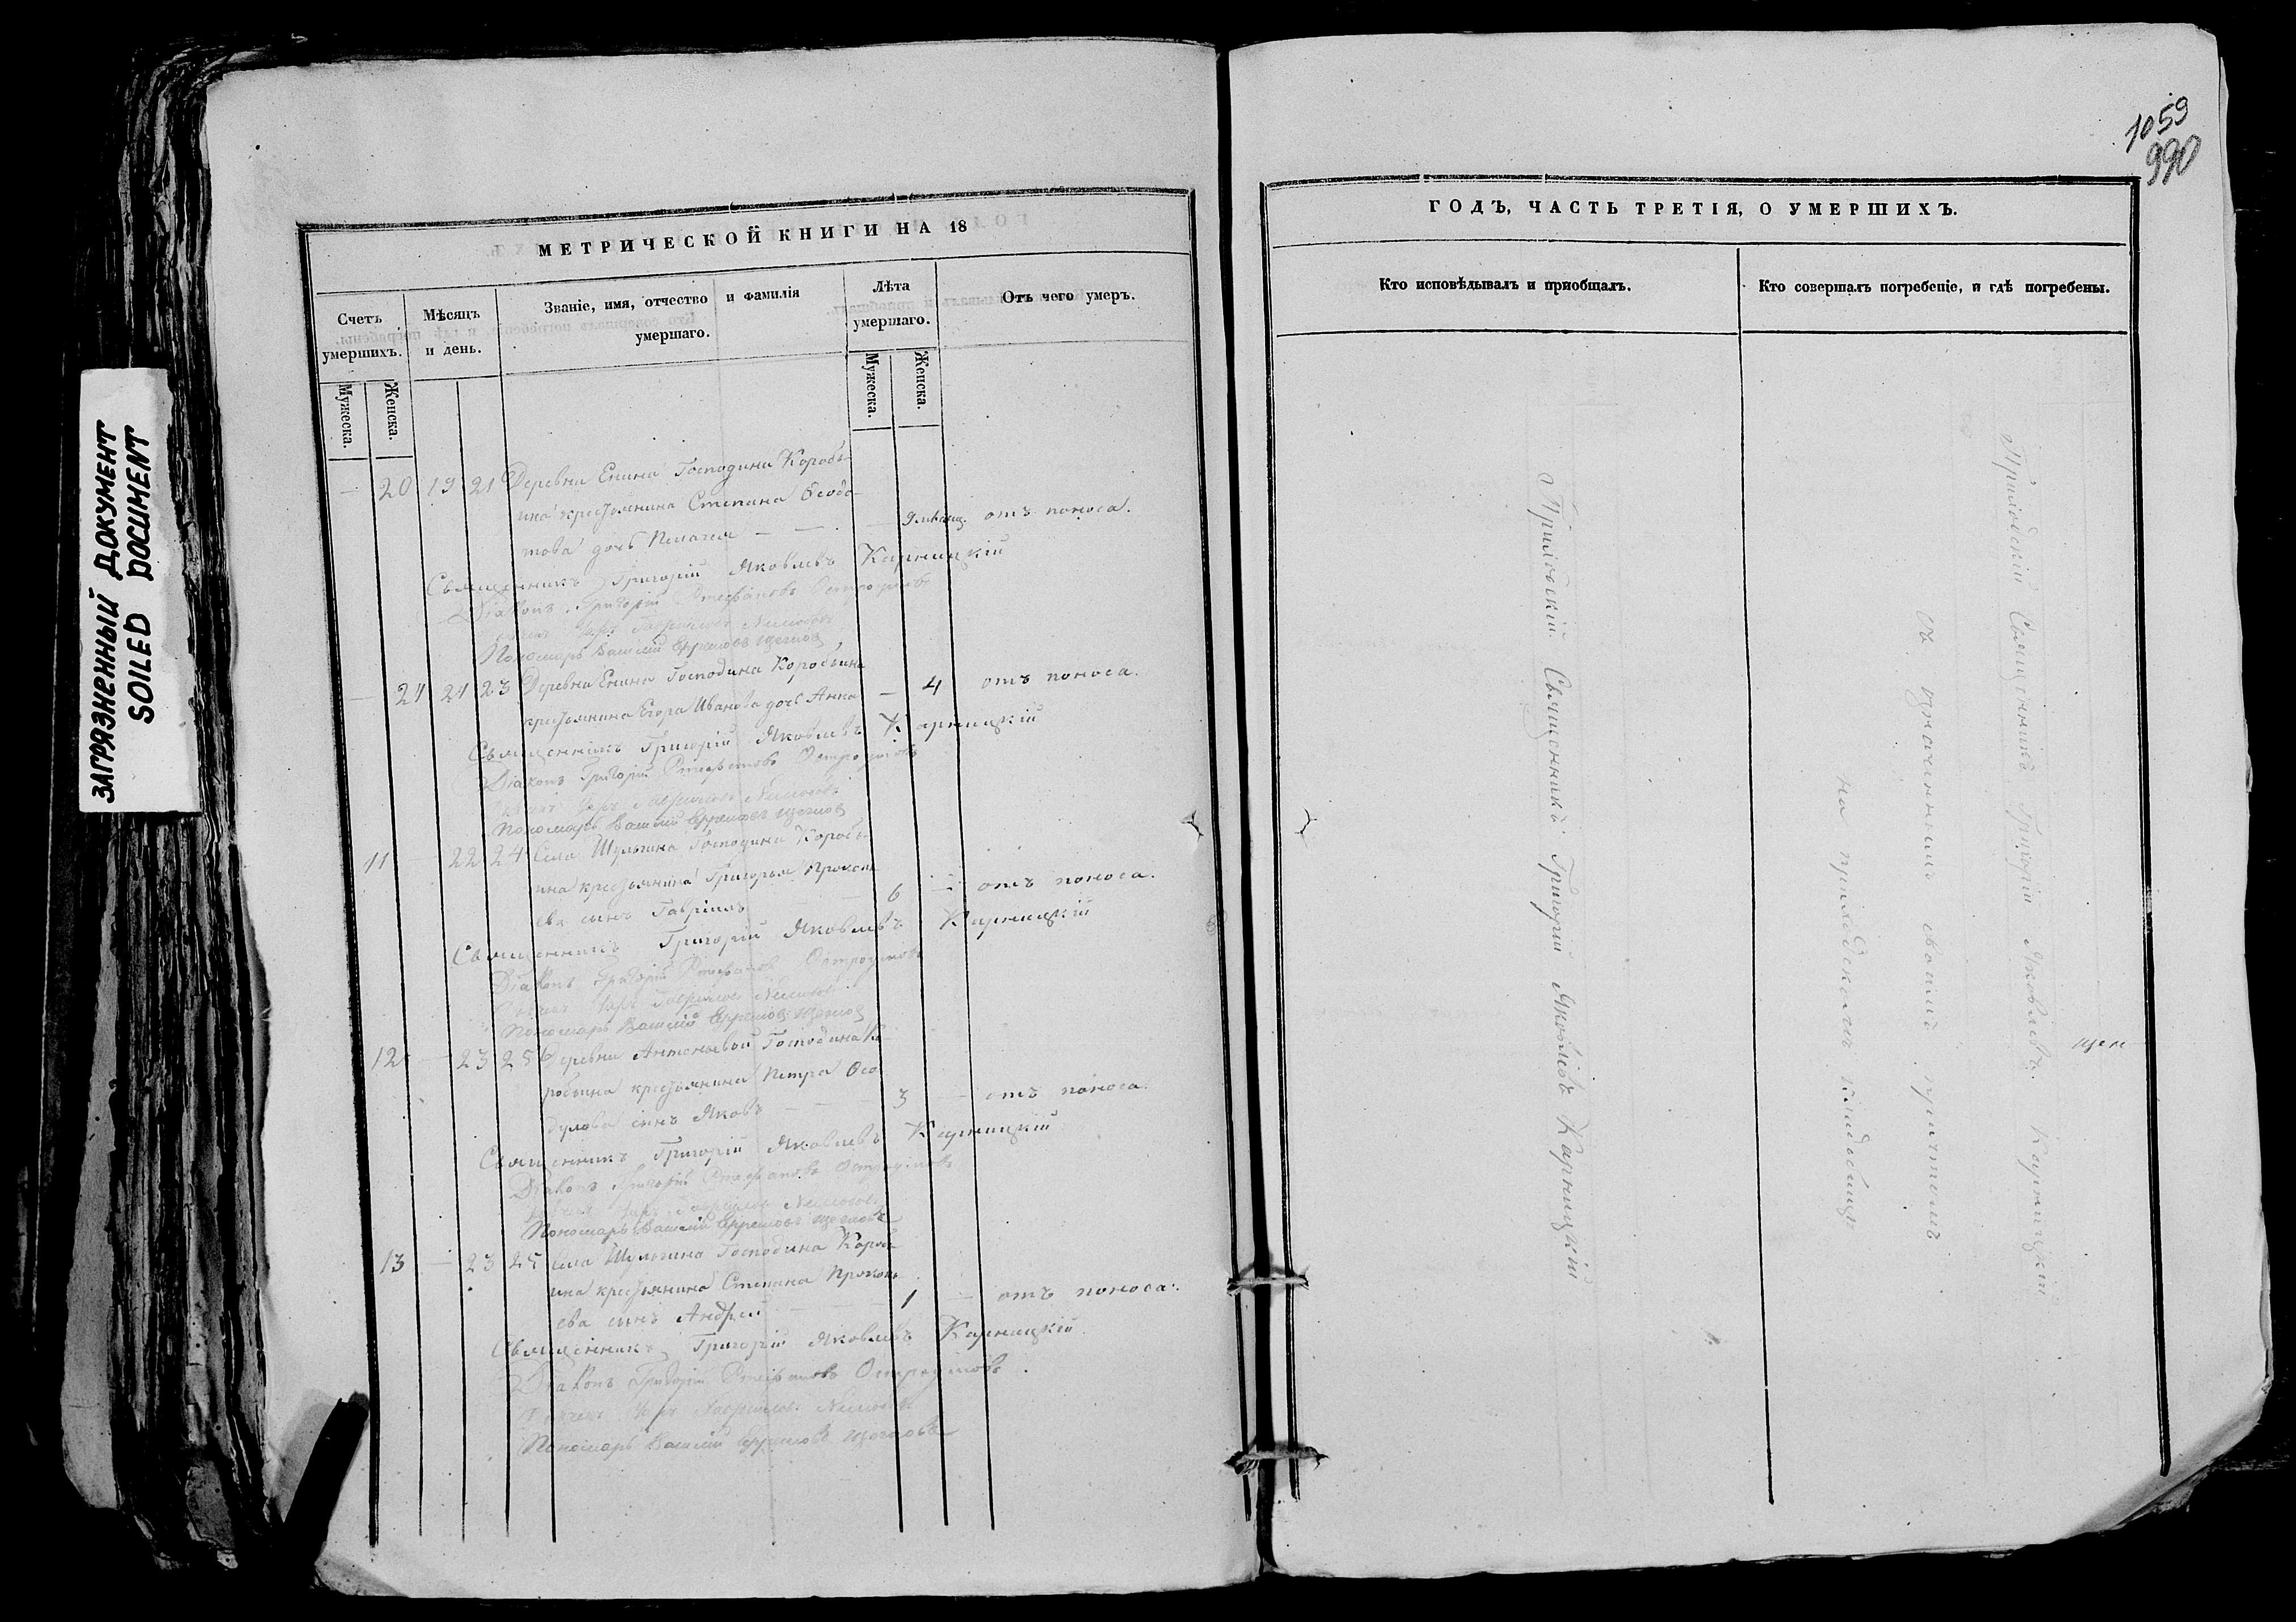 ЗАГРЯЗНЕННЫЙ ДОКУМЕНТ
SOILED DOCUMENT
МЕТРИЧЕСКОЙ КНИГИ НА 18
Счетъ умершихъ.
Мужеска.
Женска.
Мѣсяцъ и день.
Званіе, имя, отчество и фамилія умершаго.
Лѣта умершаго.
Мужеска.
Женска.
Отъ чего умеръ.
— 20 19 21 Деревни Енина Господина Коробь-
ина крестьянина Степана Ѳедо-
това дочь Пелагея — — — 9 мѣсяц. отъ поноса.
Священникъ Григорій Яковлевъ Карницкій
Діаконъ Григорій Стефановъ Остроумовъ
Пономарь Василій Ефремовъ Щегловъ
— 21 21 23 Деревни Енина Господина Коробьина
крестьянина Егора Иванова дочь Анна — 4 отъ поноса.
Священникъ Григорій Яковлевъ Карницкій
Діаконъ Григорій Стефановъ Остроумовъ
Пономарь Василій Ефремовъ Щегловъ
11 — 22 24 Села Шульгина Господина Коробь-
ина крестьянина Григорья Прокопь-
ева сынъ Гавріилъ — — 6 — отъ поноса.
Священникъ Григорій Яковлевъ Карницкій
Діаконъ Григорій Стефановъ Остроумовъ
Пономарь Василій Ефремовъ Щегловъ
12 — 23 25 Деревни Антоньевой Господина Ко-
робьина крестьянина Петра Ѳео-
дулова сынъ Яковъ — — 3 — отъ поноса.
Священникъ Григорій Яковлевъ Карницкій
Діаконъ Григорій Стефановъ Остроумовъ
Пономарь Василій Ефремовъ Щегловъ
13 — 23 25 Села Шульгина Господина Коробь-
ина крестьянина Степана Прокопь-
ева сынъ Андрей — — 1 — отъ поноса.
Священникъ Григорій Яковлевъ Карницкій
Діаконъ Григорій Стефановъ Остроумовъ
Пономарь Василій Ефремовъ Щегловъ
1059
990
ГОДЪ, ЧАСТЬ ТРЕТІЯ, О УМЕРШИХЪ.
Кто исповѣдывалъ и пріобщалъ.
Кто совершалъ погребеніе, и гдѣ погребены.
Приходскій Священникъ Григорій Яковлевъ Карницкій
Приходскій Священникъ Григорій Яковлевъ Карницкій
съ причтомъ
на приходскомъ кладбищѣ